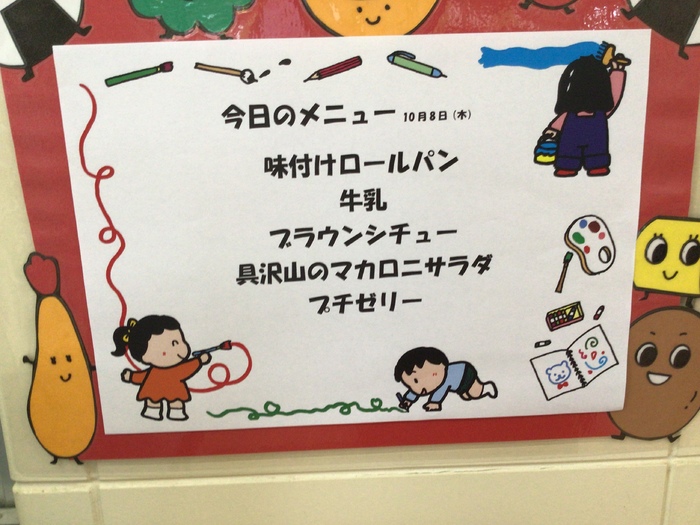 今日のメニュー 10月8日(木)
味付けロールパン
牛乳
ブラウンシチュー
具沢山のマカロニサラダ
プチゼリー